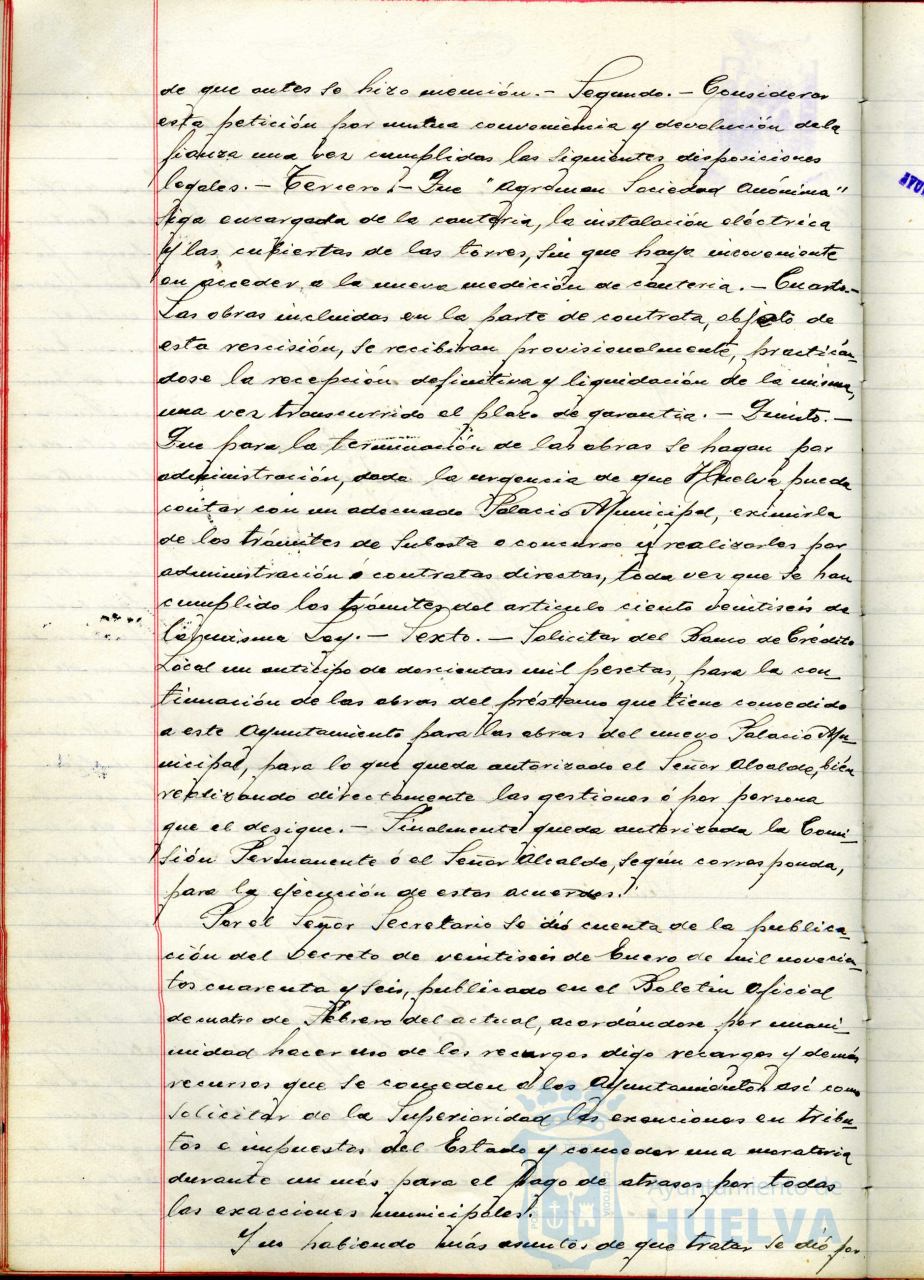 de que antes se hizo mención.- Segundo.- Considerar
esta petición por mutua conveniencia y devolución dela
fianza una vez cumplidas las siguientes disposiciones
legales.- Tercero.- Que "Agroman Sociedad Anónima"
siga encargada de la cantería, la instalación eléctrica
y las cubiertas de las torres, sin que haya inconveniente
en acceder a la nueva medición de cantería.- Cuarto.-
Las obras incluidas en la parte de contrata, objeto de
esta rescisión, se recibiran provisionalmente, practicán-
dose la recepción definitiva y liquidación de la misma,
una vez transcurrido el plazo de garantia.- Quinto.-
Que para la terminación de las obras se hagan por
administración, dada la urgencia de que Huelva pueda
contar con un adecuado Palacio Municipal, eximirla
de los trámites de Subasta o concurso y realizarlas por
administración ó contratas directas, toda vez que se han
cumplido los trámites del articulo ciento veintiseis de
la misma Ley.- Sexto.- Solicitar del Banco de Crédito
Local un anticipo de doscientas mil pesetas, para la con-
tinuación de las obras del préstamo que tiene concedido
a este Ayuntamiento para las obras del nuevo Palacio Mu-
nicipal, para lo que queda autorizado el Señor Alcalde, bien
realizando directamente las gestiones ó por persona
que el designe.- Finalmente queda autorizada la Comi-
sión Permanente ó el Señor Alcalde, según corresponda,
para la ejecución de estos acuerdos.
Por el Señor Secretario se dió cuenta de la publica-
ción del Decreto de veintiseis de Enero de mil novecien-
tos cuarenta y seis, publicado en el Boletin Oficial
de cuatro de Febrero del actual, acordándose por unani-
midad hacer uso de los recurgos digo recargos y demás
recursos que se conceden a los Ayuntamientos así como
solicitar de la Superioridad las exenciones en tribu-
tos e impuestos del Estado y conceder una moratoria
durante un més para el pago de atrasos por todas
las exacciones municipales.
Y no habiendo más asuntos de que tratar se dió por
Ayuntamiento de
HUELVA